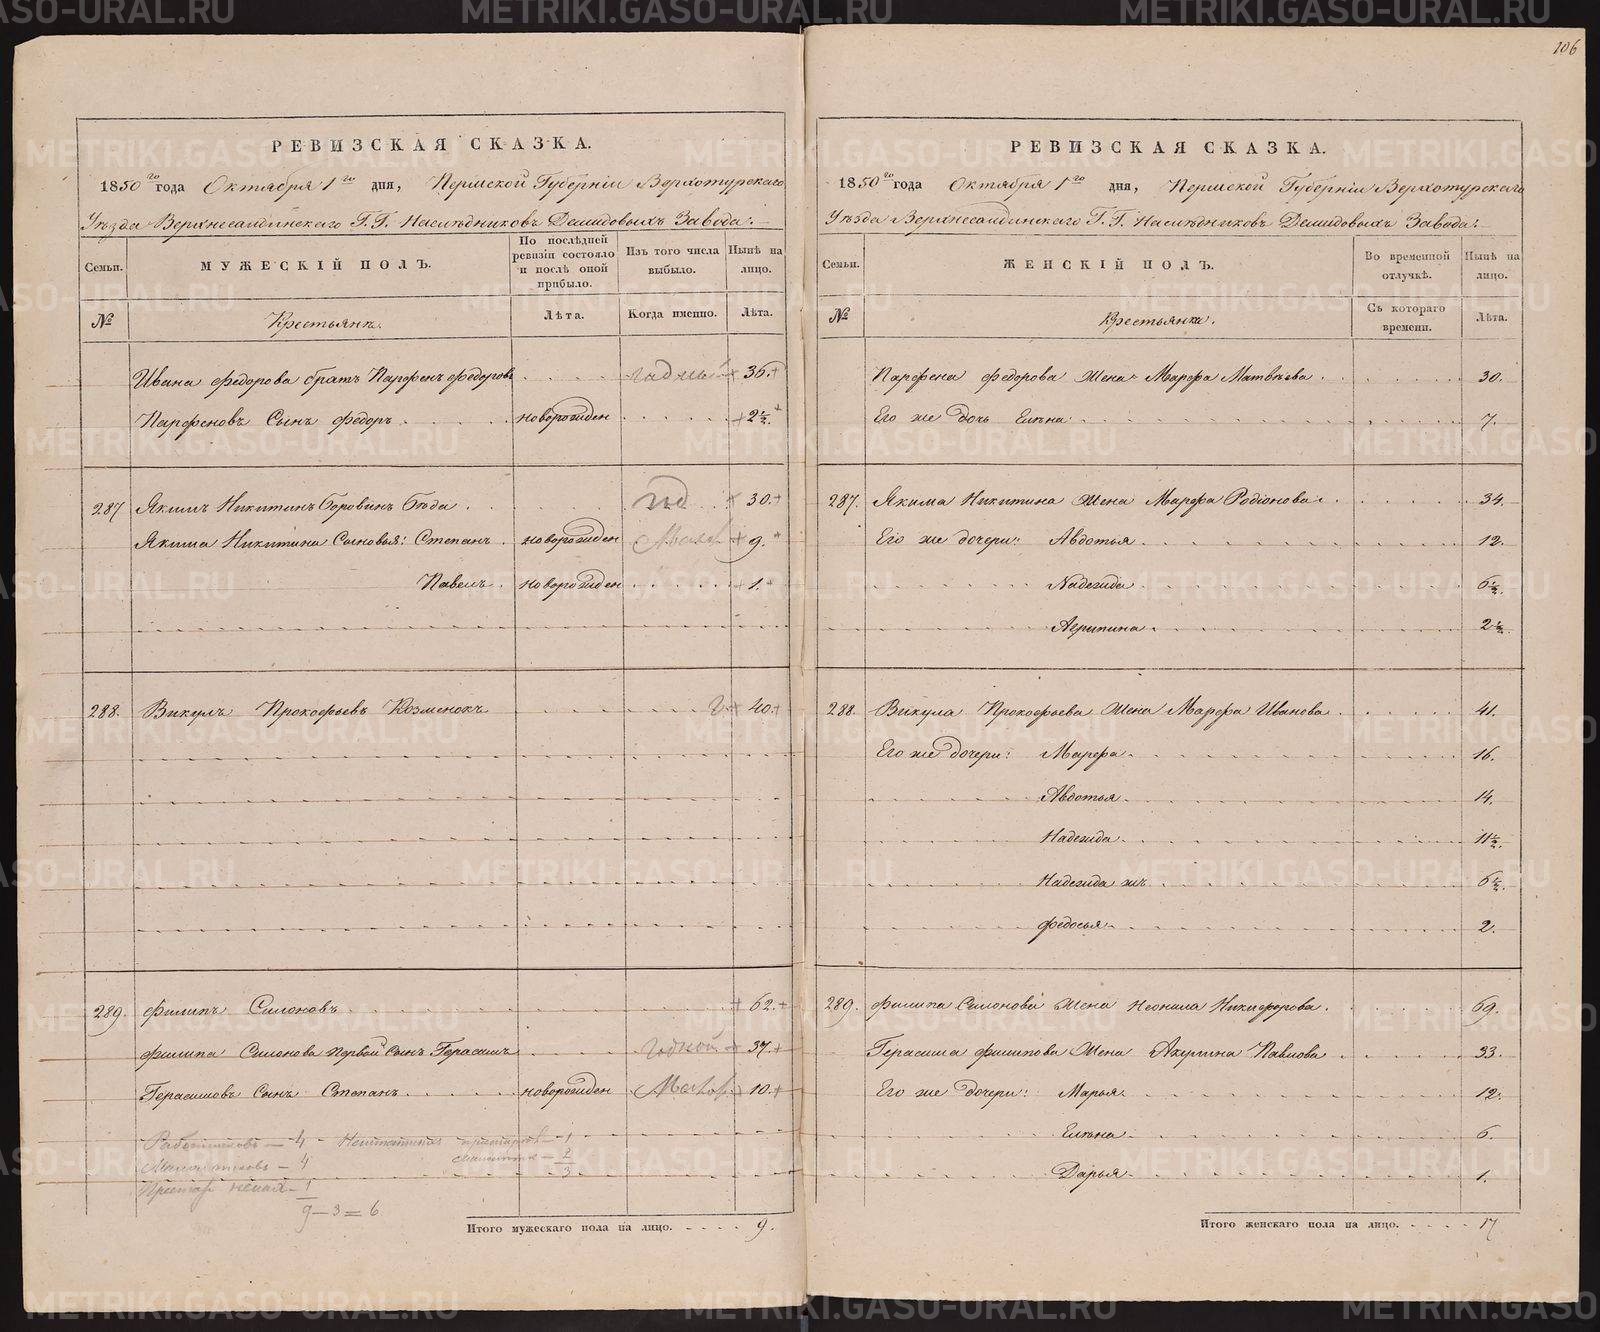 106
РЕВИЗСКАЯ СКАЗКА.
1850го года Октября 1го дня, Пермской Губерніи Верхотурскаго
Уѣзда Верхнесалдинскаго Г.Г. Наслѣдниковъ Демидовыхъ Завода:
Семьи. МУЖЕСКІЙ ПОЛЪ. По послѣдней ревизіи состояло и послѣ оной прибыло. Изъ того числа выбыло. Нынѣ на лицо.
№ Крестьяне. Лѣта. Когда именно. Лѣта.
Ивана Федорова братъ Парфенъ Федоровъ годный 36.
Парфеновъ Сынъ Федоръ новорожден 2½.
287 Якимъ Никитинъ Боровинъ Бода год 30.
Якима Никитина Сыновья: Степанъ новорожден Малол 9.
Павелъ новорожден 1.
288. Викулъ Прокофьевъ Козменокъ г 40.
289. Филипъ Симоновъ 62.
Филипа Симонова первой Сынъ Герасимъ годной 37.
Герасимовъ Сынъ Степанъ новорожден Малол 10.
Работниковъ — 4 — Нештатных престарѣл — 1
Малолѣтковъ — 4 малолетк — 2
3
Престарѣлыхъ — 1
9 — 3 = 6
Итого мужескаго пола на лицо. 9.
РЕВИЗСКАЯ СКАЗКА.
1850го года Октября 1го дня, Пермской Губерніи Верхотурскаго
Уѣзда Верхнесалдинскаго Г.Г. Наслѣдниковъ Демидовыхъ Завода:
Семьи. ЖЕНСКІЙ ПОЛЪ. Во временной отлучкѣ. Нынѣ на лицо.
№ Крестьянки. Съ котораго времени. Лѣта.
Парфена Федорова жена Марфа Матвѣева 30.
Его же дочь Елѣна 7.
287. Якима Никитина жена Марфа Родіонова 34.
Его же дочери: Авдотья 12.
Надежда 6½.
Агрипина 2½.
288. Викула Прокофьева жена Марфа Иванова 41.
Его же дочери: Марфа 16.
Авдотья 14.
Надежда 11½.
Надежда жъ 6½.
Федосья 2.
289. Филипа Симонова жена Неонила Никифорова 69.
Герасима Филипова жена Акулина Павлова 33.
Его же дочери: Марья 12.
Елѣна 6.
Дарья 1.
Итого женскаго пола на лицо. 17
METRIKI.GASO-URAL.RU